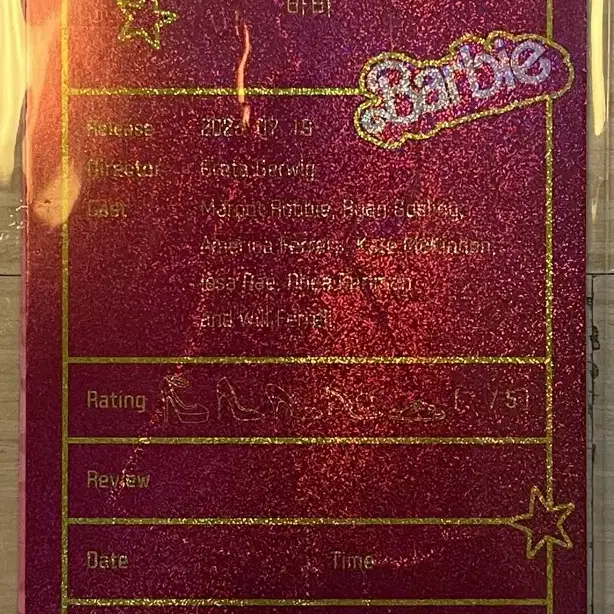 바비
Barbie
Release 2023. 07. 19
Director Greta Gerwig
Cast Margot Robbie, Ryan Gosling,
America Ferrera, Kate McKinnon,
Issa Rae, Rhea Perlman
and Will Ferrell
Rating ( / 5)
Review
Date Time